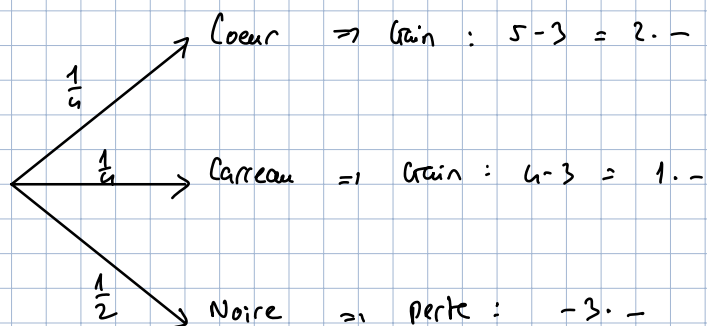 Coeur => Gain : 5-3 = 2.-
1/4
1/4 Carreau => Gain : 4-3 = 1.-
1/2
Noire => perte : -3.-